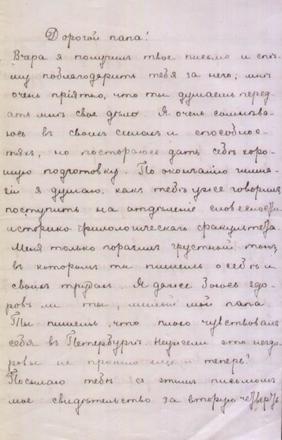 Дорогой папа!
Вчера я получилъ твое письмо и спѣ-
шу поблагодарить тебя за него; мнѣ
очень пріятно, что ты думаешь перед
ать мнѣ свое дѣло. Я очень сомнѣва-
юсь въ своихъ силахъ и способнос-
тяхъ, но постараюсь дать себѣ хоро-
шую подготовку. По окончаніи гимна-
зіи я думаю, какъ тебѣ уже говорилъ
поступить на отдѣленіе словесности
историко филологическаго факультета.
Меня только поразилъ грустный тонъ,
въ которомъ ты пишешь о себѣ и
своихъ трудахъ. Я даже боюсь здо-
ровъ ли ты, милый мой папа
Ты пишешь, что плохо чувствовалъ
себя въ Петербургѣ. Неужели это нездо
ровье не прошло еще и теперь?
Посылаю тебѣ съ этимъ письмомъ
мое свидѣтельство за вторую четверть